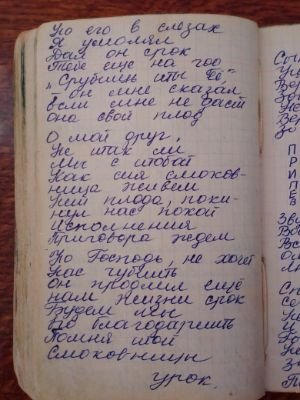 Но его в слезах
Я умолял
Дай он срок
Тебе еще на год
"Срубишь ты её,"
— он мне сказал
Если мне не даст
она свой плод
О мой друг,
Не так ли
Мы с тобой
Как сия смоков-
ница живём
Нет плода, поки-
нул нас покой
Исполнения
Приговора ждем
Но Господь, не хотя
Нас губить
Он продлил ещё
нам жизни срок
Будем мы
Его благодарить
Помня той
Смоковницы
урок.
П
Р
И
П
Е
В